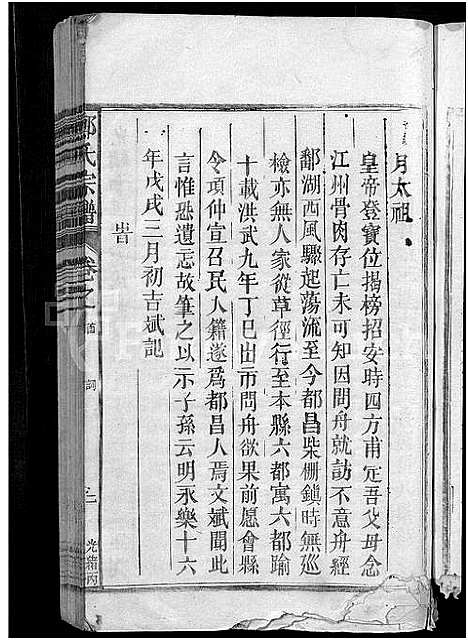 月太祖
皇帝登寶位揭榜招安時四方甫定吾父母念
江州骨肉存亡未可知因問舟就訪不意舟經
鄱湖西風驟起蕩流至今都昌柴棚鎮時無巡
檢亦無人家從草徑行至本縣六都寓六都踰
十載洪武九年丁巳出市問舟欲果前愿會縣
令項仲宣召民人籍遂爲都昌人焉文斌聞此
言惟恐遺忘故筆之以示子孫云明永樂十六
年戊戌三月初吉斌記
氏宗譜
卷之
詞
光緒丙